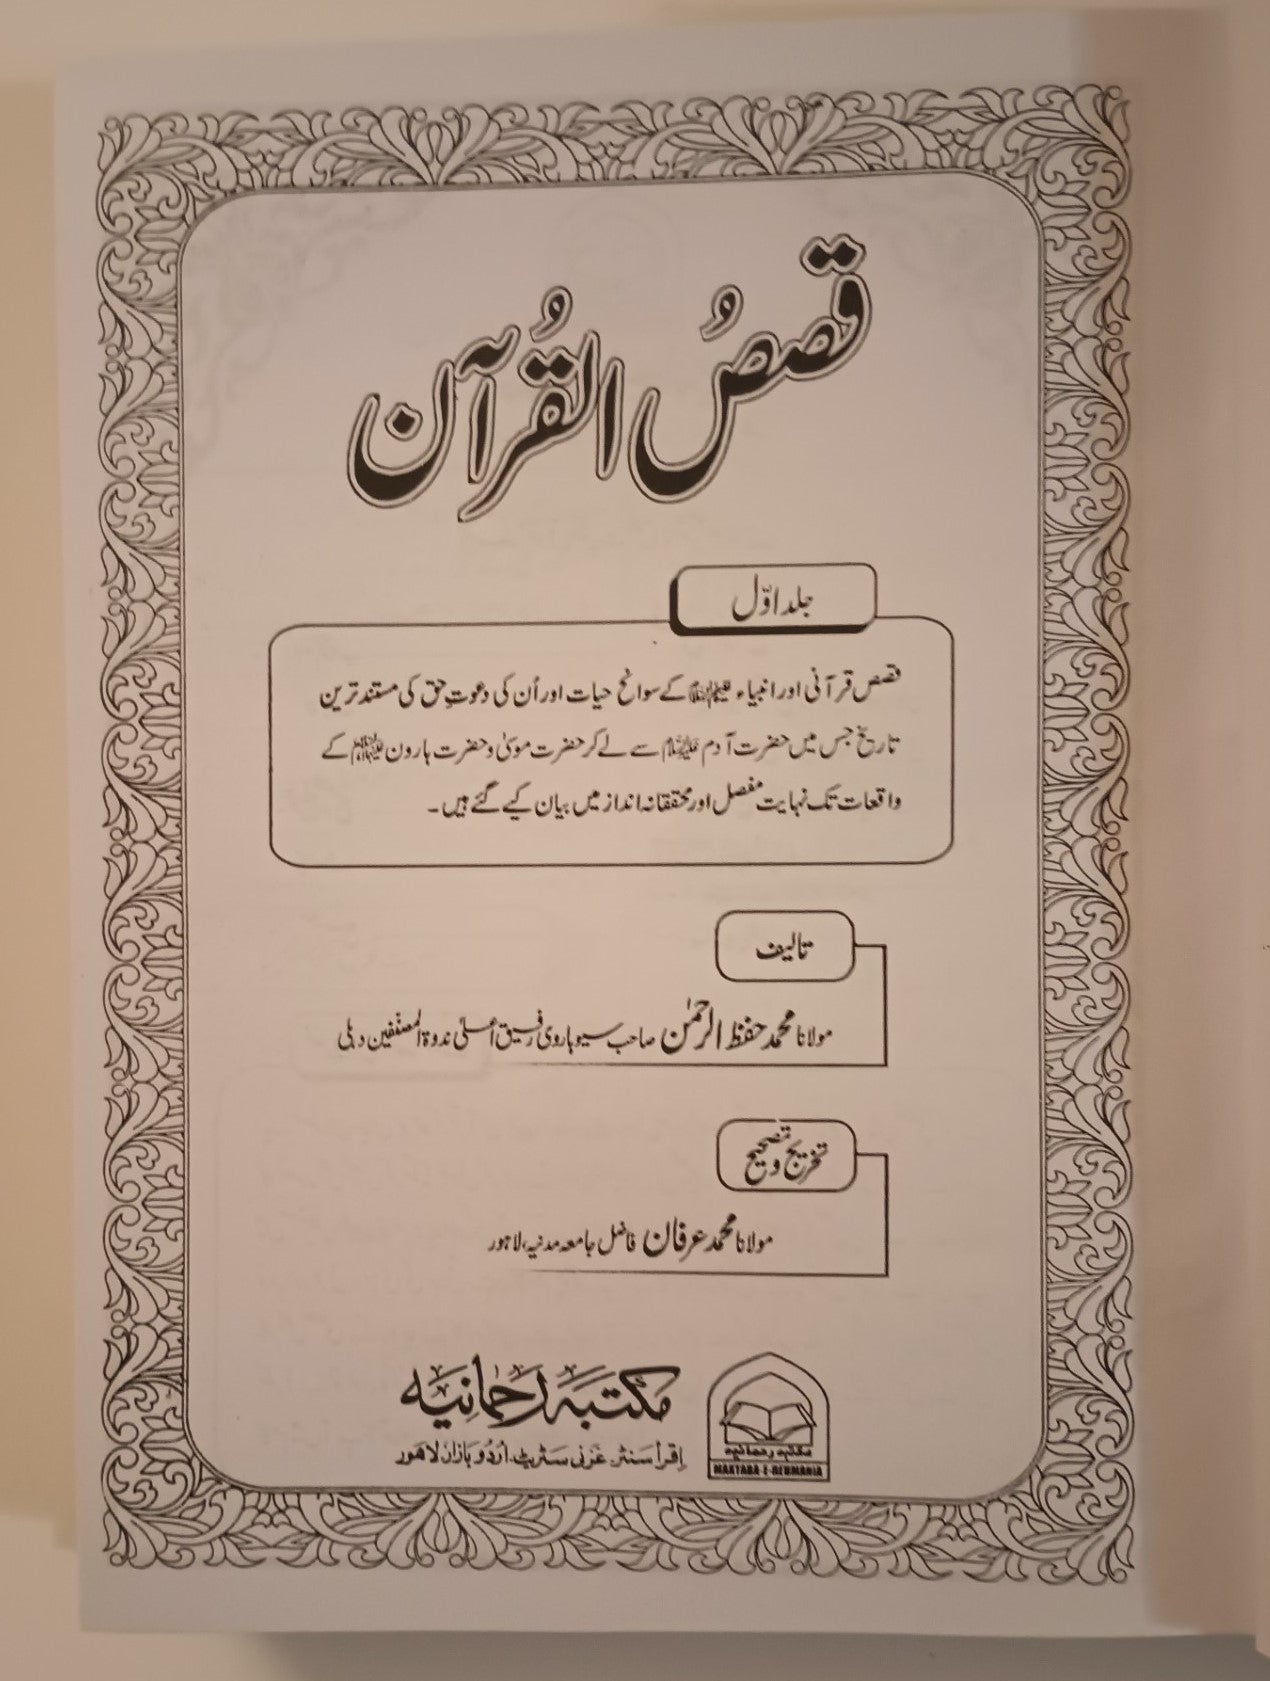 قصصُ القُرآن
جلد اوّل
قصص قرآنی اور انبیاء علیہم السلام کے سوانح حیات اور اُن کی دعوتِ حق کی مستند ترین
تاریخ جس میں حضرت آدم علیہ السلام سے لے کر حضرت موسیٰ و حضرت ہارون علیہما السلام کے
واقعات تک نہایت مفصل اور محققانہ انداز میں بیان کیے گئے ہیں۔
تالیف
مولانا محمد حفظ الرحمٰن صاحب سیوہاروی رفیق اعلیٰ ندوۃ المصنّفین دہلی
تخریج و تصحیح
مولانا محمد عرفان فاضل جامعہ مدنیہ، لاہور
مکتبہ رحمانیہ
اِقرأ سنٹر غزنی سٹریٹ. اُردُو بازار لاہور
مکتبہ رحمانیہ
MAKTABA-E-REHMANIA